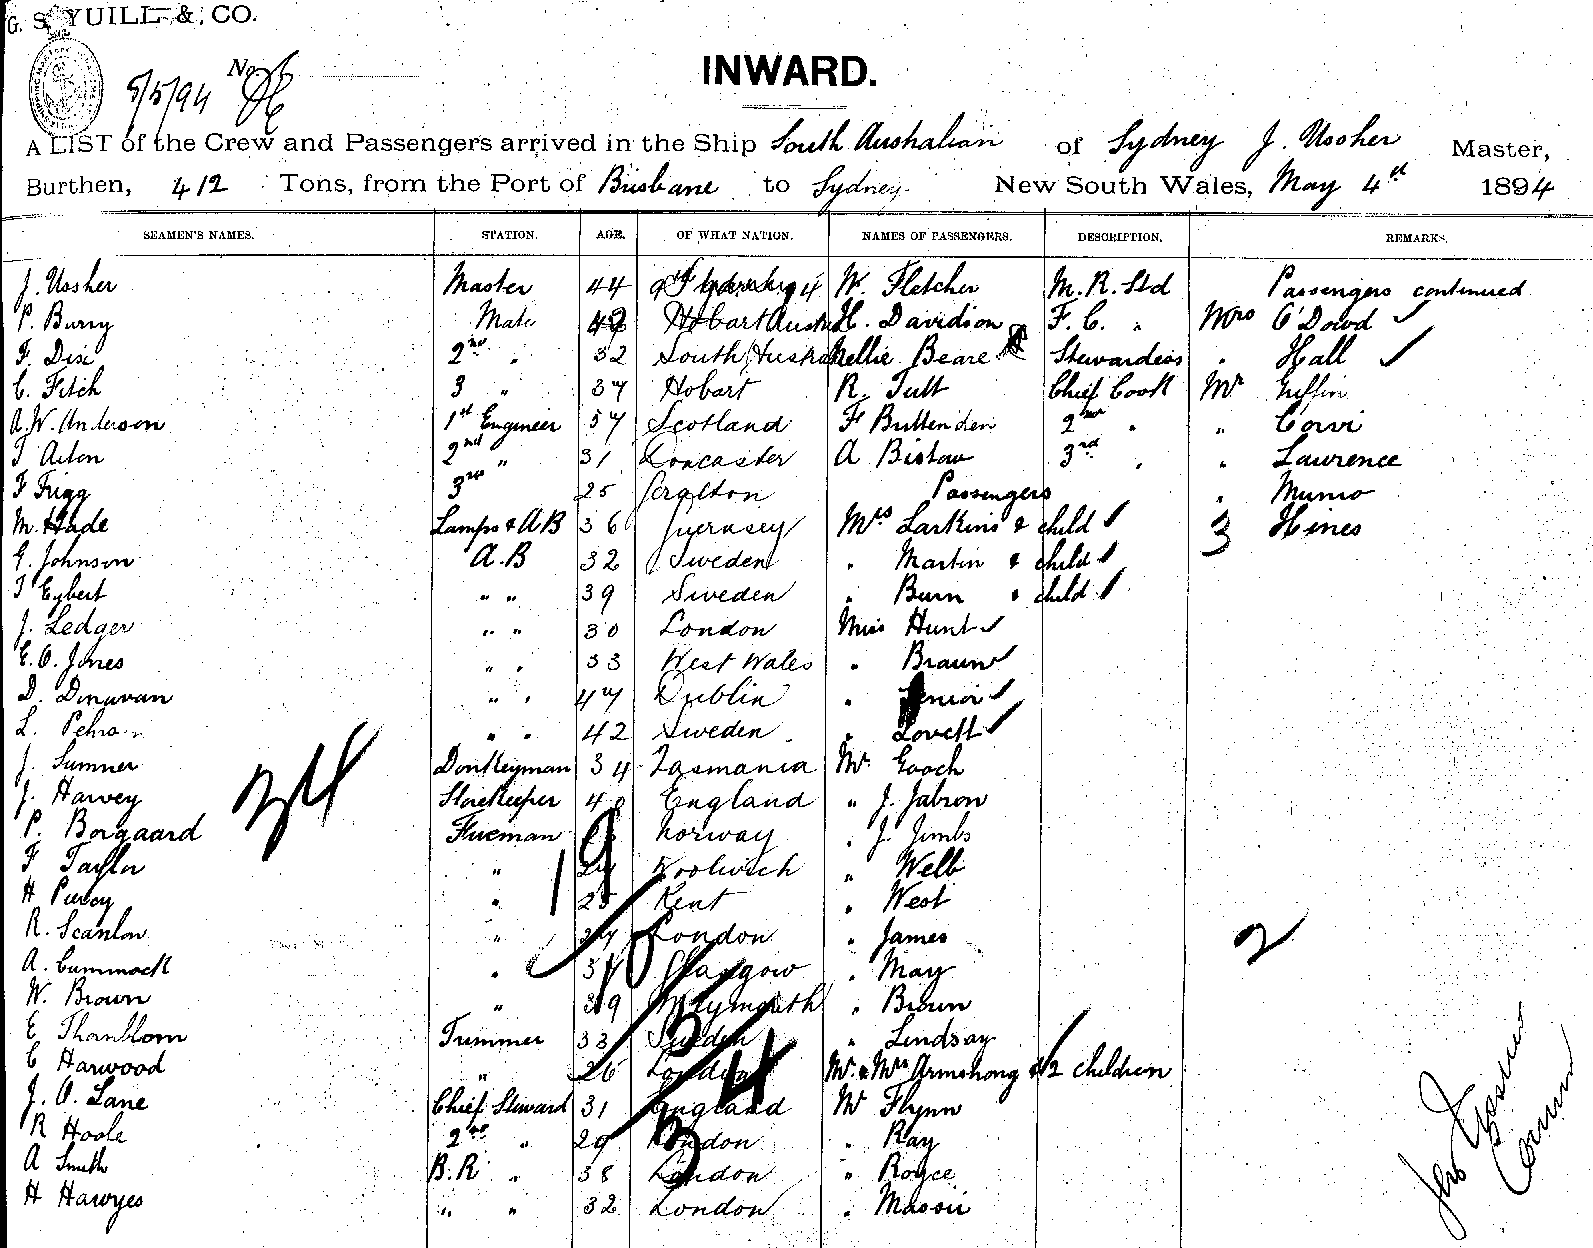 G. S. YUILL & CO.
No.
5/5/94
INWARD.
A LIST of the Crew and Passengers arrived in the Ship South Australian of Sydney J. Ussher Master,
Burthen, 412 Tons, from the Port of Brisbane to Sydney New South Wales, May 4th 1894
SEAMEN'S NAMES. STATION. AGE. OF WHAT NATION. NAMES OF PASSENGERS. DESCRIPTION. REMARKS.
J. Ussher Master 44 W. Fletcher M. R. Std Passengers continued
P. Burry Mate Hobart H. Davidson F. C. " Mrs O'Dowd
F. Dixi 2nd " 32 South Austra Nellie Beare Stewardess " Hall
C. Fitch 3 " 37 Hobart R. Tutt Chief Cook Mr Griffin
A. W. Anderson 1st Engineer 57 Scotland F Buttenden 2nd " " Corvi
T Acton 2nd " 31 Loncaster A Bistow 3rd " " Lawrence
F Frigg 3rd 25 Passengers " Munro
M. Hade Lamps & AB 36 Guernsey Mrs Larkins & child 3 Hines
G. Johnson A.B 32 Sweden " Martin & child
T Egbert " " 39 Sweden " Burn & child
J. Ledger " " 30 London Miss Hunt
E. O. Jones " " 33 West Wales " Braun
D. Donovan " " 47 Dublin " Senior
L. " " 42 Sweden " Lovett
J. Sumner Donkeyman 34 Tasmania Mr Gooch
J. Harvey Storekeeper 40 England " J. Jabron
P. Borgaard Fireman Norway " J. Jimbs
F Taylor " Woolwich " Webb
H Purvy " 25 Kent " West
R. Scanlon " 27 London " James
A. Cummock " Glasgow " May
W. Brown " 39 Weymouth " Brown
E Thanblom Trimmer 33 Sweden " Lindsay
C Harwood " 26 London Mr & Mrs Armstrong & 2 children
J. O. Lane Chief Steward 31 England Mr Flynn
R Hoole 2nd " 29 London " Ray
A Smith B.R " 38 London " Royce
H Hawyes " " 32 London " Massii
2